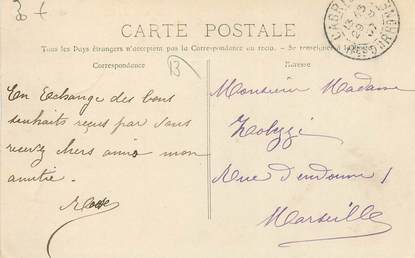 CARTE POSTALE
Tous les Pays étrangers n'acceptent pas la Correspondance au recto. - Se renseigner
Correspondance
Adresse
13
En Echange des bons
souhaits reçus par sans
recevez chers amis mon
amitié.
Monsieur Madame
Rue d'endoume 1
Marseille